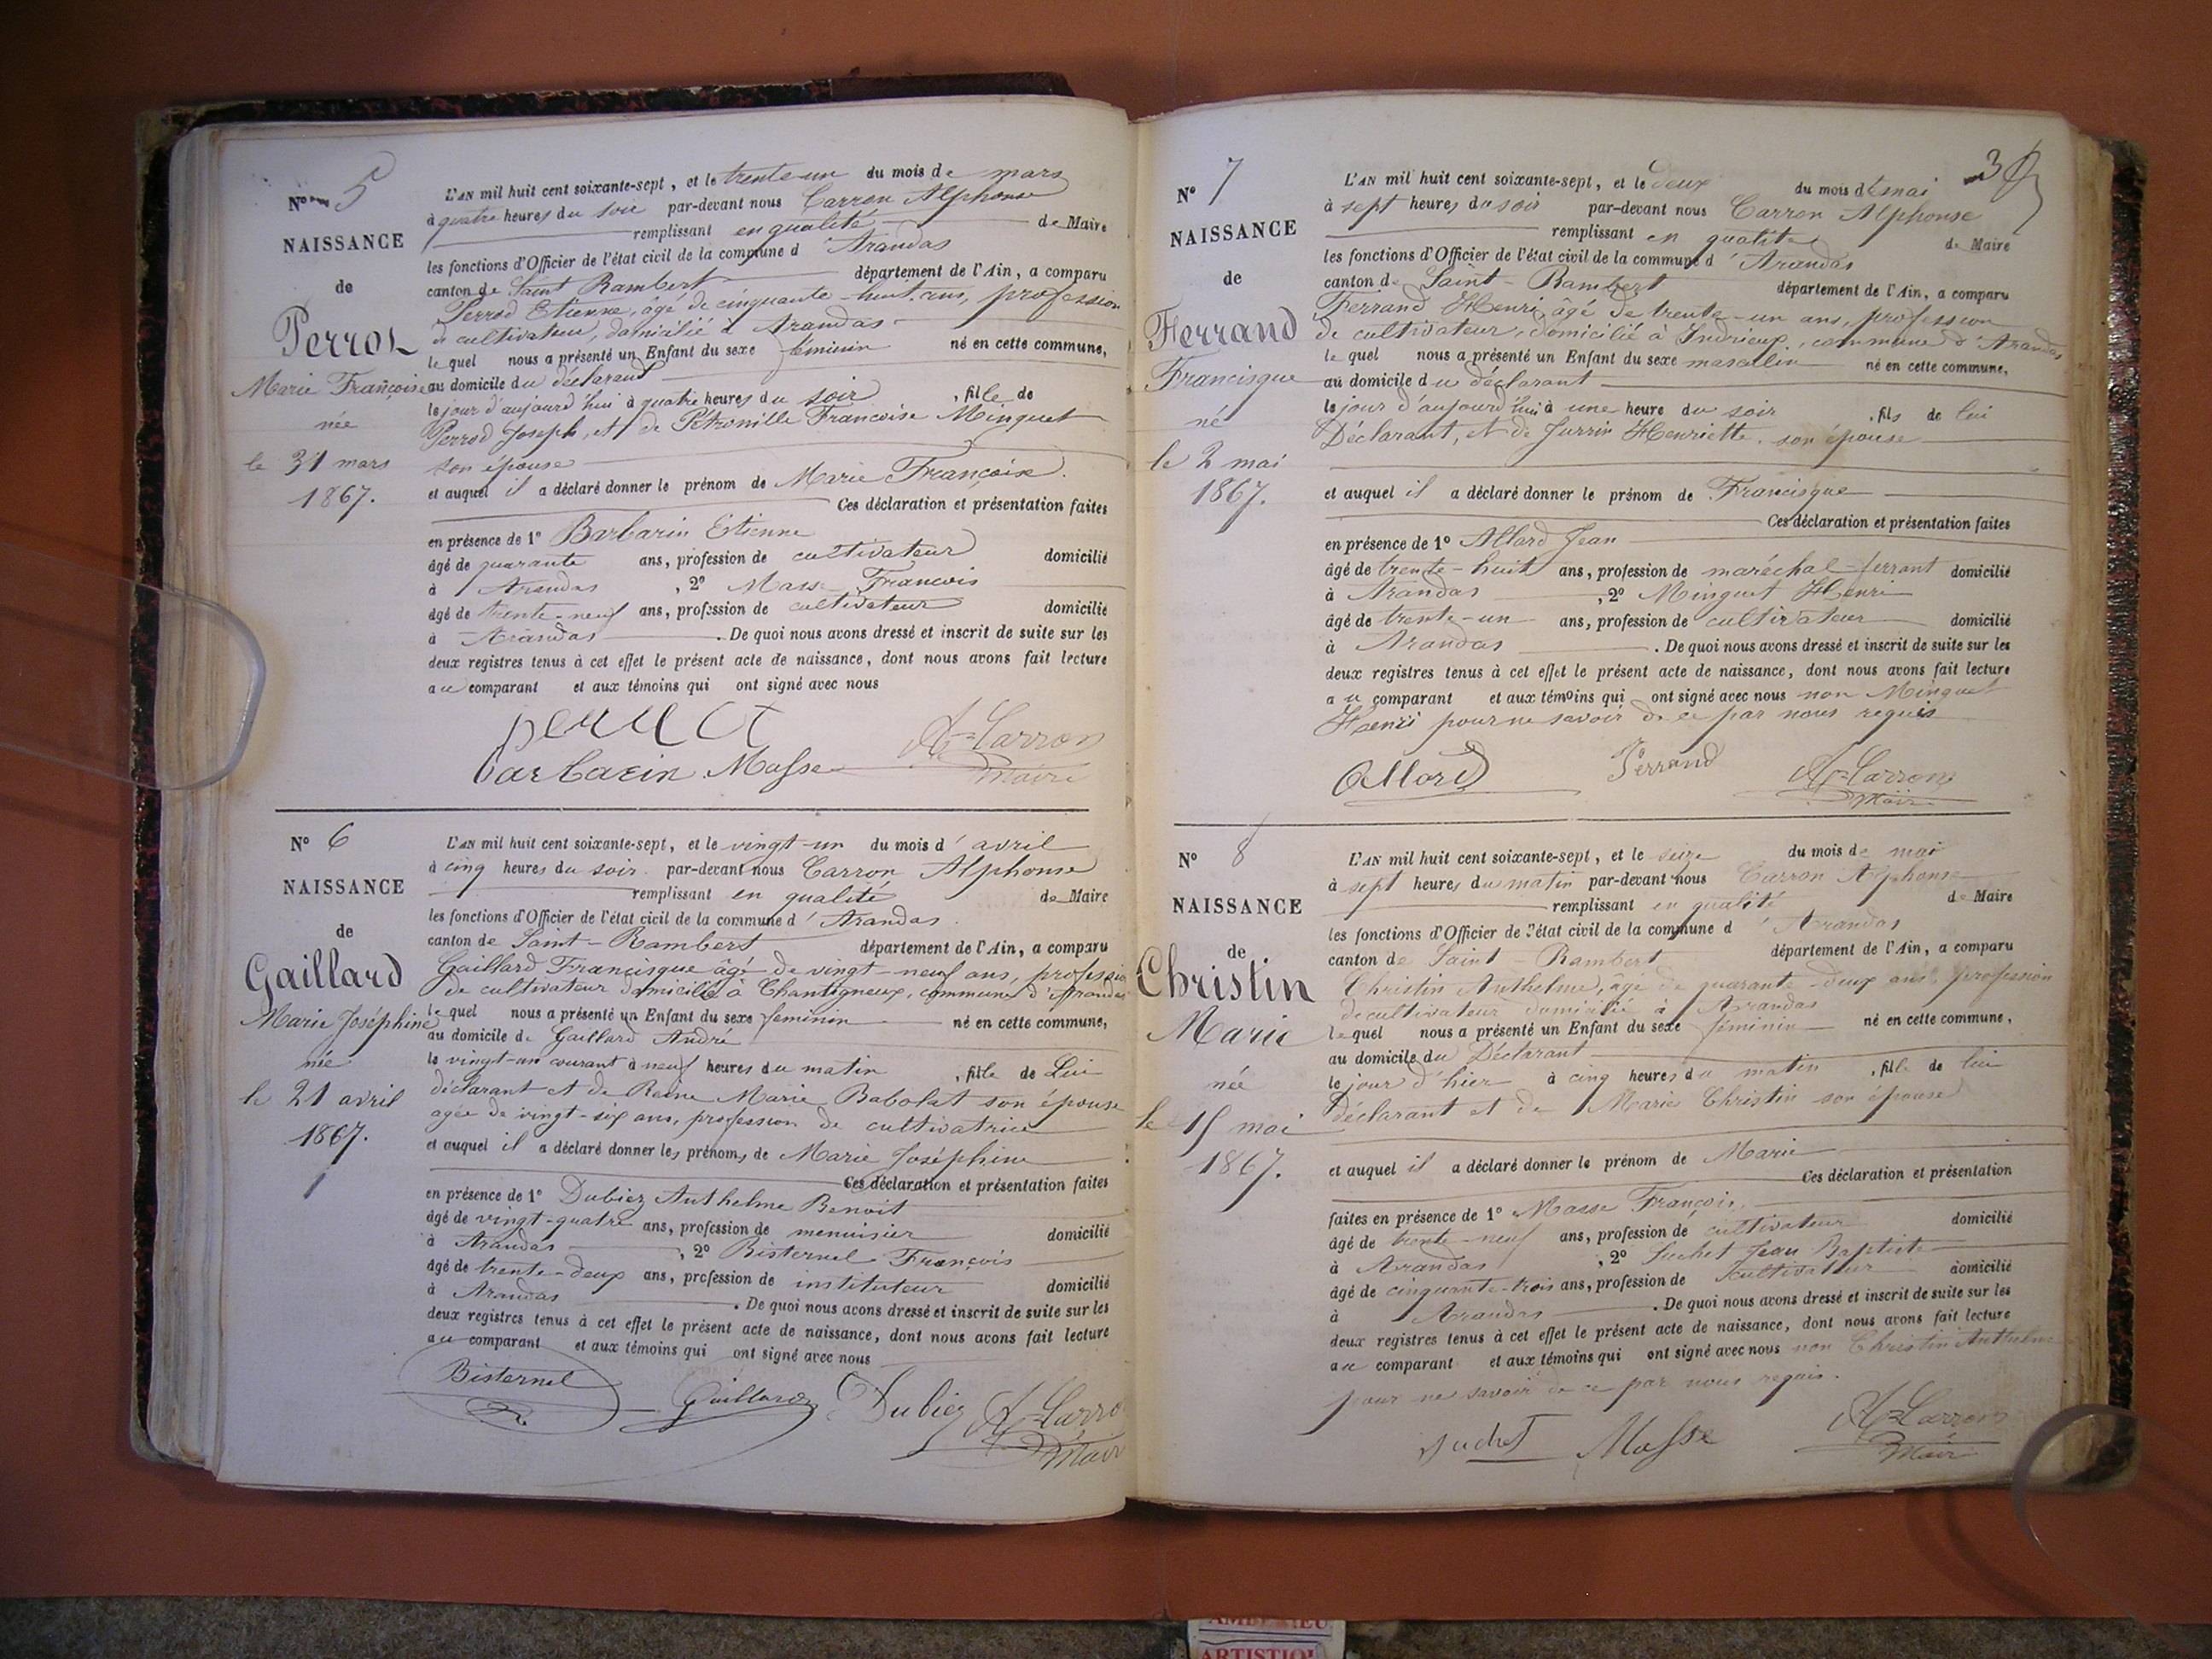 Nº 5
NAISSANCE
de
Perrod
Marie Françoise
née
le 31 mars
1867.
L'AN mil huit cent soixante-sept, et le trente-un du mois de mars
à quatre heures du soir par-devant nous Carron Alphonse
remplissant en qualité de Maire
les fonctions d'Officier de l'état civil de la commune d'Arandas
canton de Saint Rambert département de l'Ain, a comparu
Perrod Etienne, âgé de cinquante-huit ans, profession
de cultivateur, domicilié à Arandas
lequel nous a présenté un Enfant du sexe féminin né en cette commune,
au domicile du déclarant
le jour d'aujourd'hui à quatre heures du soir, fille de
Perrod Joseph, et de Pétronille Françoise Minguet
son épouse
et auquel il a déclaré donner le prénom de Marie Françoise.
Ces déclaration et présentation faites
en présence de 1º Barbarin Etienne
âgé de quarante ans, profession de cultivateur domicilié
à Arandas, 2º Masse François
âgé de trente-neuf ans, profession de cultivateur domicilié
à Arandas. De quoi nous avons dressé et inscrit de suite sur les
deux registres tenus à cet effet le présent acte de naissance, dont nous avons fait lecture
au comparant et aux témoins qui ont signé avec nous
A=Carron
barbarin Masse Maire
Nº 6
NAISSANCE
de
Gaillard
Marie Joséphine
née
le 21 avril
1867.
L'AN mil huit cent soixante-sept, et le vingt-un du mois d'avril
à cinq heures du soir par-devant nous Carron Alphonse
remplissant en qualité de Maire
les fonctions d'Officier de l'état civil de la commune d'Arandas
canton de Saint-Rambert département de l'Ain, a comparu
Gaillard Francisque âgé de vingt-neuf ans, profession
de cultivateur domicilié à Chantigneux, commune d'Arandas
lequel nous a présenté un Enfant du sexe féminin né en cette commune,
au domicile de Gaillard André
le vingt-un courant à neuf heures du matin, fille de Lui
déclarant et de Reine Marie Babolat son épouse
agée de vingt-six ans, profession de cultivatrice
et auquel il a déclaré donner les prénoms de Marie Joséphine
Ces déclaration et présentation faites
en présence de 1º Dubiez Anthelme Benoit
âgé de vingt-quatre ans, profession de menuisier domicilié
à Arandas, 2º Bisternel François
âgé de trente-deux ans, profession de instituteur domicilié
à Arandas. De quoi nous avons dressé et inscrit de suite sur les
deux registres tenus à cet effet le présent acte de naissance, dont nous avons fait lecture
au comparant et aux témoins qui ont signé avec nous
Bisternel Gaillard Dubiez A=Carro
Mair
3
Nº 7
NAISSANCE
de
Ferrand
Francisque
né
le 2 mai
1867.
L'AN mil huit cent soixante-sept, et le deux du mois de mai
à sept heures du soir par-devant nous Carron Alphonse
remplissant en qualité de Maire
les fonctions d'Officier de l'état civil de la commune d'Arandas
canton de Saint-Rambert département de l'Ain, a comparu
Ferrand Henri, âgé de trente-un ans, profession
de cultivateur, domicilié à Indrieux, commune d'Arandas
lequel nous a présenté un Enfant du sexe masculin né en cette commune,
au domicile du déclarant
le jour d'aujourd'hui à une heure du soir, fils de lui
Déclarant, et de Jurrin Henriette, son épouse
et auquel il a déclaré donner le prénom de Francisque
Ces déclaration et présentation faites
en présence de 1º Allard Jean
âgé de trente-huit ans, profession de maréchal-ferrant domicilié
à Arandas, 2º Minguet Henri
âgé de trente-un ans, profession de cultivateur domicilié
à Arandas. De quoi nous avons dressé et inscrit de suite sur les
deux registres tenus à cet effet le présent acte de naissance, dont nous avons fait lecture
au comparant et aux témoins qui ont signé avec nous non Minguet
Henri pour ne savoir de ce par nous requis
Allard Ferrand A=Carron
Maire
Nº 8
NAISSANCE
de
Christin
Marie
née
le 15 mai
1867.
L'AN mil huit cent soixante-sept, et le seize du mois de mai
à sept heures du matin par-devant nous Carron Alphonse
remplissant en qualité de Maire
les fonctions d'Officier de l'état civil de la commune d'Arandas
canton de Saint-Rambert département de l'Ain, a comparu
Christin Anthelme, âgé de quarante-deux ans, profession
de cultivateur domicilié à Arandas
lequel nous a présenté un Enfant du sexe féminin né en cette commune,
au domicile du Déclarant
le jour d'hier à cinq heures du matin, fille de lui
déclarant et de Marie Christin son épouse
et auquel il a déclaré donner le prénom de Marie
Ces déclaration et présentation
faites en présence de 1º Masse François,
âgé de trente-neuf ans, profession de cultivateur domicilié
à Arandas, 2º Suchet Jean Baptiste
âgé de cinquante-trois ans, profession de cultivateur domicilié
à Arandas. De quoi nous avons dressé et inscrit de suite sur les
deux registres tenus à cet effet le présent acte de naissance, dont nous avons fait lecture
au comparant et aux témoins qui ont signé avec nous non Christin Anthelme
pour ne savoir de ce par nous requis.
suchet Masse A=Carron
Maire
ARTISTIQ